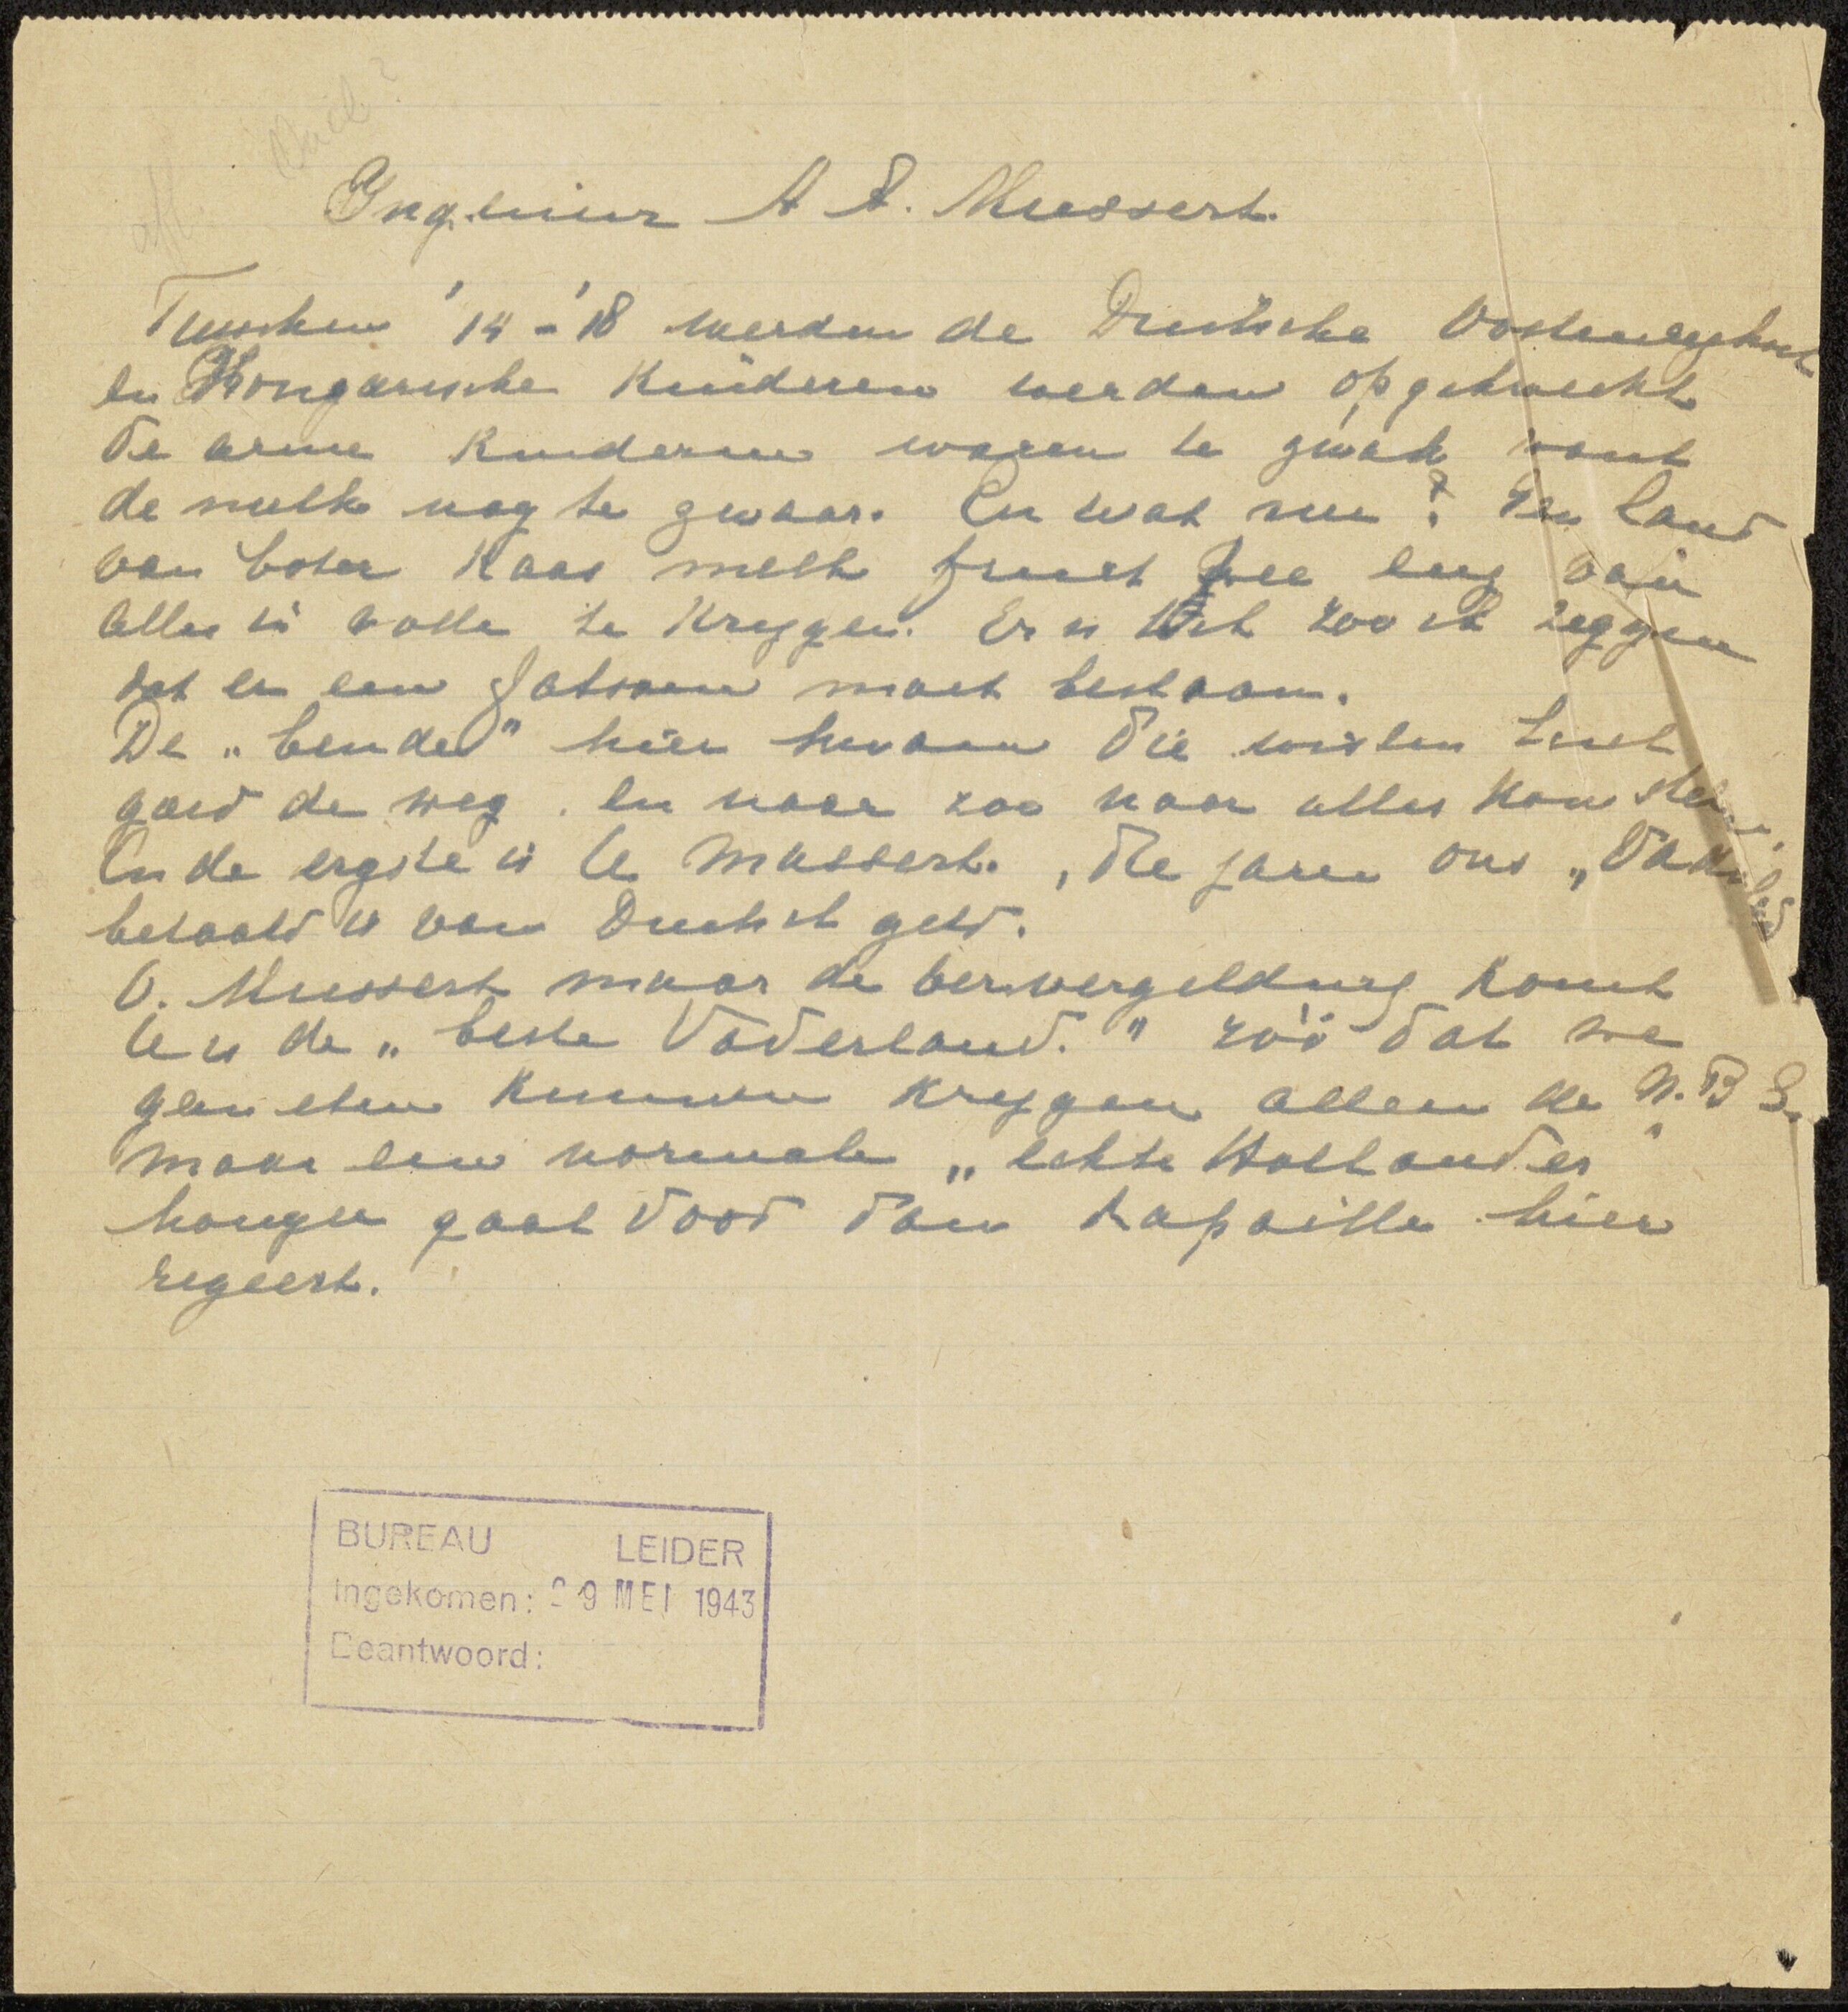 Ingenieur A A. Mussert.
Tusschen '14-'18 werden de Duitsche Oostenrijksch
en Hongarische Kinderen werden opgekweekt
de arme Kinderen waren te zwak want
de melk nog te zwaar. En wat nu? Een land
van boter Kaas melk fruit vee enz van
alles in volle te Krijgen. Er is zoo te zeggen
dat er een fatsoen moet bestaan.
De „bende" hier kwam die wisten
goed de weg. en naar zoo naar alles Kon
En de ergste is U Mussert. , die jaren ons
betaald is van Duitsch geld.
O. Mussert maar de wervergelding Komt
U is de „beste Vaderland." zóó dat we
geen eten Kunnen Krijgen alleen de N.B S.
maar een normale „echte Hollander"
honger gaat dood dan Kapaille hier
regeert.
BUREAU LEIDER
Ingekomen: 29 MEI 1943
Beantwoord: